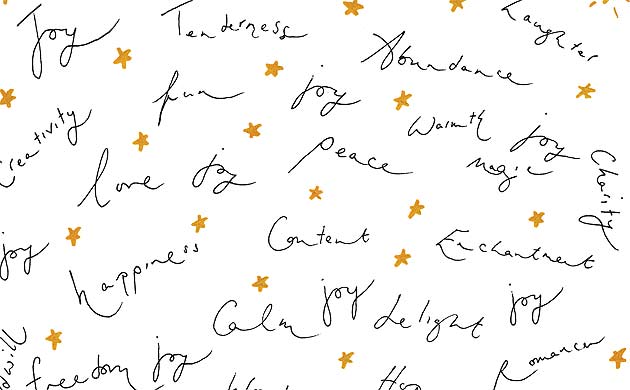 Joy
Tenderness
Laughter
Abundance
fun
joy
Warmth
joy
Creativity
love
joy
Peace
Magic
Charity
joy
happiness
Content
Enchantment
Calm
joy
delight
joy
freedom
joy